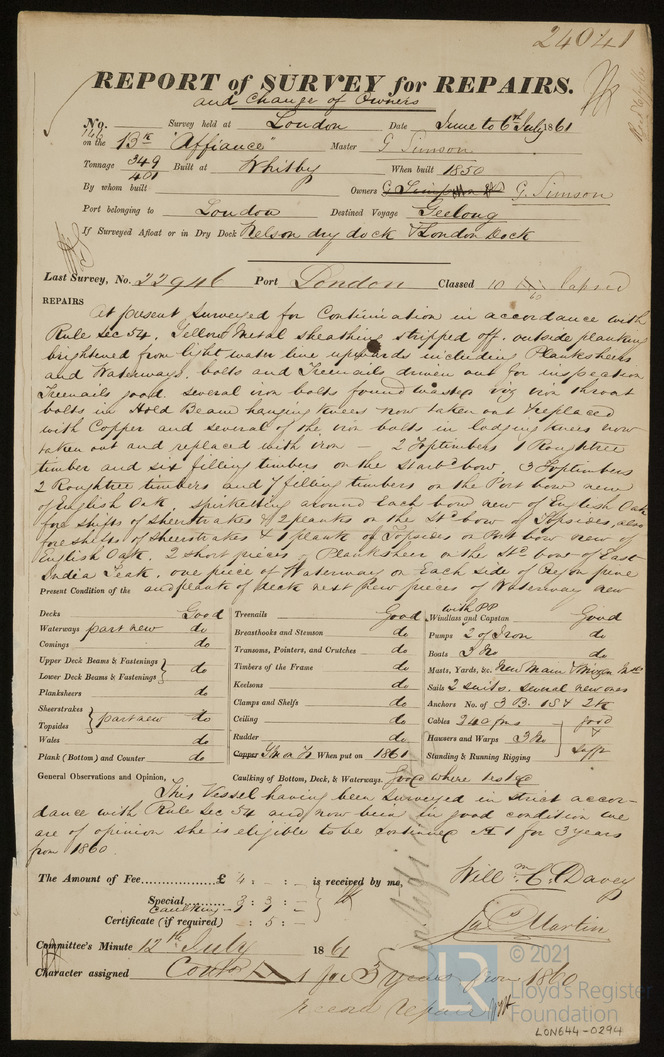 24041
REPORT of SURVEY for REPAIRS.
and Change of Owners
No. 746 Survey held at London Date June to 6th July 1861
on the Bk "Affiance" Master G Simson
Tonnage 349 / 401 Built at Whitby When built 1850
By whom built Owners G. Simson
Port belonging to London Destined Voyage Geelong
If Surveyed Afloat or in Dry Dock Nelson dry dock & London Dock
Last Survey, No. 22946 Port London Classed 10 lapsed
REPAIRS
At present Surveyed for Continuation in accordance with
Rule Sec 54. Yellow Metal sheathing stripped off, outside planking
brightened from light water line upwards including Planksheers
and Waterways. bolts and Treenails driven out for inspection
Treenails good. several iron bolts found wasted viz iron throat
bolts in Hold Beam hanging knees now taken out & replaced
with Copper and several of the iron bolts in lodging knees now
taken out and replaced with iron — 2 Toptimbers 1 Roughtree
timber and six filling timbers on the Starbd bow, 3 Toptimbers
2 Roughtree timbers and 7 filling timbers on the Port bow new
of English Oak spirketting around each bow new of English Oak
fore shifts of Sheerstrakes & 2 planks on the Std bow of Topsides, also
fore shifts of Sheerstrakes & 1 plank of Topsides on Port bow new of
English Oak. 2 short pieces of Planksheer on the Std bow of East
India Teak. one piece of Waterway on Each side of Oregon pine
and planks of deck next new pieces of Waterway new
Present Condition of the
Decks Good
Waterways part new do
Comings do
Upper Deck Beams & Fastenings
Lower Deck Beams & Fastenings } do
Planksheers do
Sheerstrakes
Topsides } part new do
Wales do
Plank (Bottom) and Counter do
Treenails Good
Breasthooks and Stemson do
Transoms, Pointers, and Crutches do
Timbers of the Frame do
Keelsons do
Clamps and Shelfs do
Ceiling do
Rudder do
Copper YM on F When put on 1861
with PP
Windlass and Capstan Good
Pumps 2 of Iron do
Boats 3 No do
Masts, Yards, &c. New Main & Mizen Mts
Sails 2 suits. several new ones
Anchors No. of 3 B. 1 S & 2 K
Cables 240 fms good
Hausers and Warps 3 No &
Standing & Running Rigging Sufft
General Observations and Opinion, Caulking of Bottom, Deck, & Waterways. Good where tested
This Vessel having been Surveyed in strict accor-
dance with Rule Sec 54 and now been in good condition we
are of opinion she is eligible to be continued A 1 for 3 years
from 1860
The Amount of Fee £ 4 : - : - is received by me,
Special 3 : 3 : -
Caulking 1 : -
Certificate (if required) : 5 : -
Willm C. Davey
Martin
Committee's Minute 12th July 1861
Character assigned Contd A 1 for 3 years from 1860
record repairs
© 2021
LR
Lloyd's Register
Foundation
LON644-0294